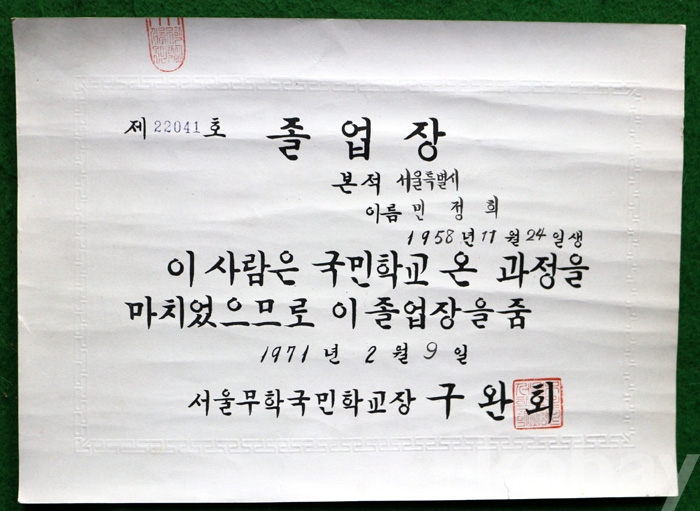 제 22041 호 졸업장
본적 서울특별시
이름 민정희
1958년 11월 24일생
이 사람은 국민학교 온 과정을
마치었으므로 이 졸업장을 줌
1971년 2월 9일
서울무학국민학교장 구완회
kobay